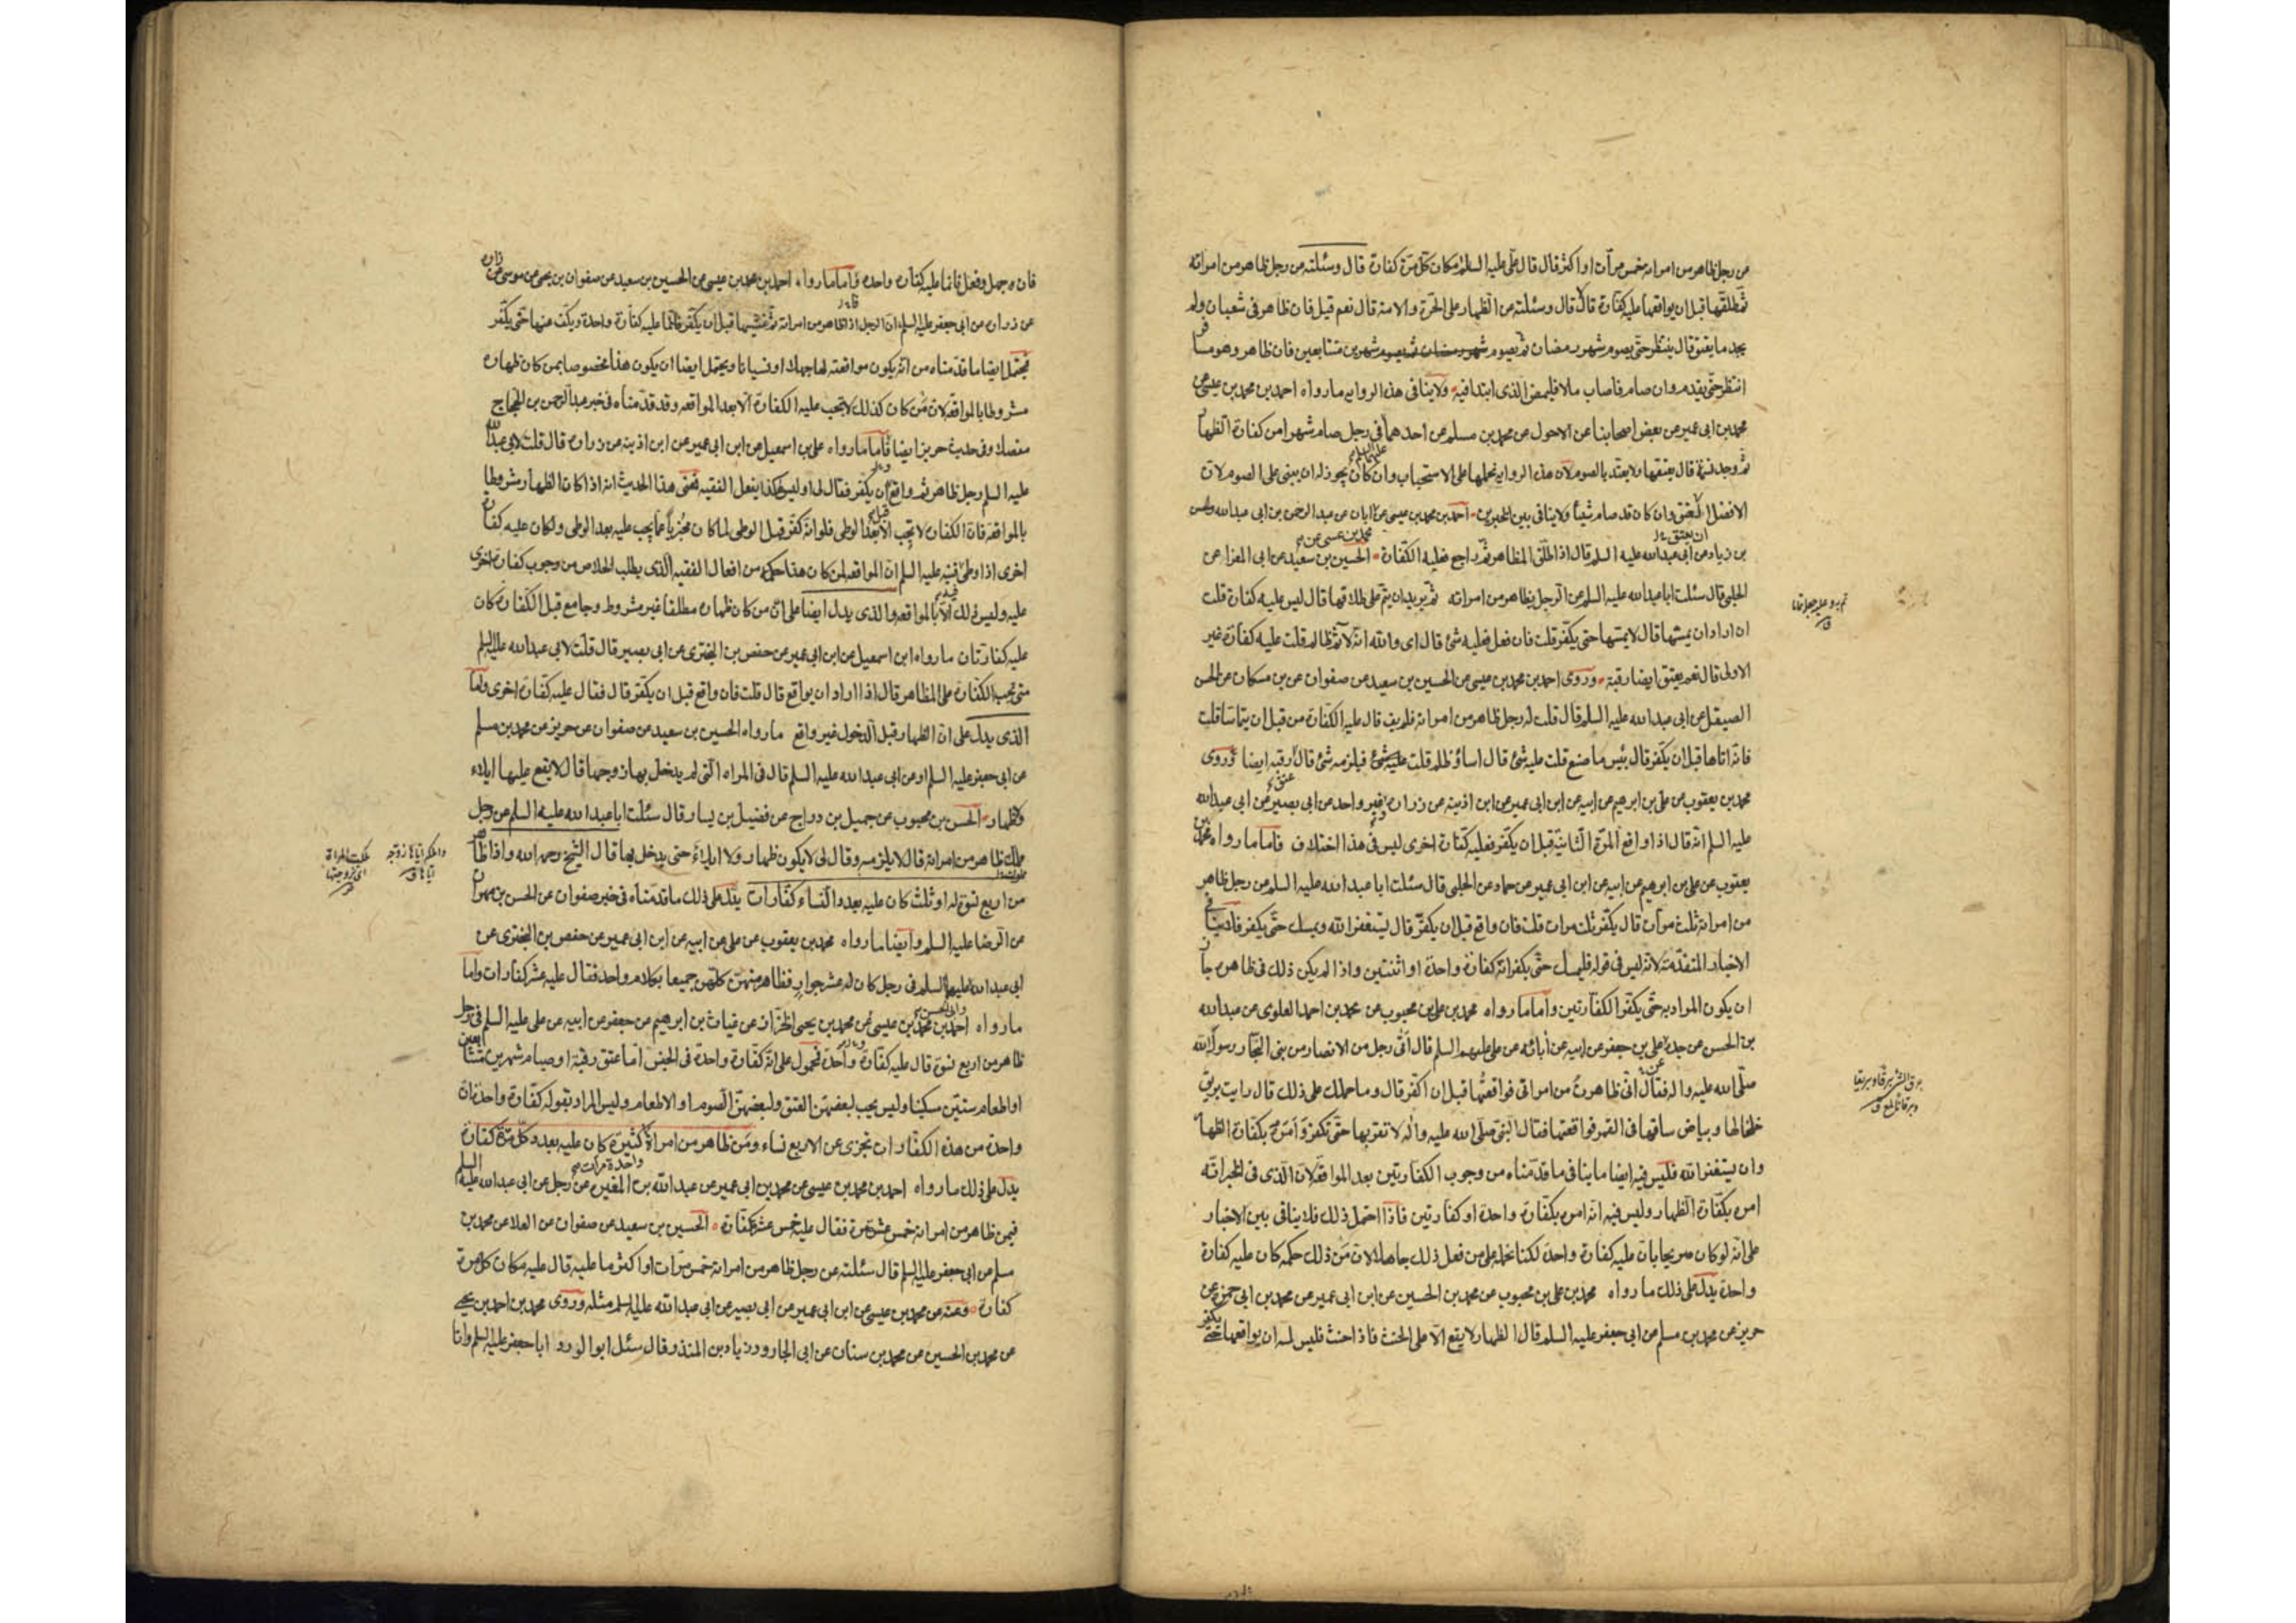 عن رجل ظاهر من امراته خمس مرات او اكثر قال قال علي عليه السلم مكان كل مرة كفارة قال وسئلته عن رجل ظاهر من امراته
ثم طلقها قبل ان يواقعها عليه كفارة قال لا قال وسئلته عن الظهار على الحرة والامة قال نعم قيل فان ظاهر في شعبان ولم
يجد ما يعتق قال ينتظر حتى يصوم شهر رمضان ثم يصوم شهرين متتابعين فان ظاهر وهو مسافر
انتظر حتى يقدم وان صام فاصاب مالا فليمض الذي ابتدا فيه ولا ينافي هذه الرواية ما رواه احمد بن محمد بن عيسى عن
محمد بن ابي عمير عن بعض اصحابنا عن الاحول عن محمد بن مسلم عن احدهما عليهما السلم في رجل صام شهرا من كفارة الظهار
ثم وجد نسمة قال يعتقها ولا يعتد بالصوم لان هذه الرواية نحملها على الاستحباب وان كان يجوز له ان يبني على الصوم لان
الافضل ان يعتق وان كان قد صام شيئا ولا ينافي بين الخبرين احمد بن محمد بن عيسى عن ابان عن عبد الرحمن بن ابي عبد الله والحسن
بن زياد عن ابي عبد الله عليه السلم قال اذا طلق المظاهر ثم راجع فعليه الكفارة الحسين بن سعيد عن ابي المغرا عن
الحلبي قال سئلت ابا عبد الله عليه السلم عن الرجل يظاهر من امراته ثم يريد ان يتم على طلاقها قال ليس عليه كفارة قلت
ان اراد ان يمسها قال لا يمسها حتى يكفر قلت فان فعل فعليه شئ قال اي والله انه لآثم ظالم قلت عليه كفارة غير
الاولى قال نعم يعتق ايضا رقبة وروى احمد بن محمد بن عيسى عن الحسين بن سعيد عن صفوان عن بن مسكان عن الحسن
الصيقل عن ابي عبد الله عليه السلم قال قلت له رجل ظاهر من امراته فلم يف قال عليه الكفارة من قبل ان يتماسا قلت
فانه اتاها قبل ان يكفر قال بئس ما صنع قلت عليه شئ قال اساء وظلم قلت فيلزمه شئ قال رقبه ايضا وروى
محمد بن يعقوب عن علي بن ابرهيم عن ابيه عن ابن ابي عمير عن ابن اذينه عن زراره وغير واحد عن ابي بصير عن ابي عبد الله
عليه السلم انه قال اذا واقع المرة الثانية قبل ان يكفر فعليه كفارة اخرى ليس في هذا اختلاف فاما ما رواه محمد بن
يعقوب عن علي بن ابرهيم عن ابيه عن ابن ابي عمير عن حماد عن الحلبي قال سئلت ابا عبد الله عليه السلم عن رجل ظاهر
من امراته ثلث مرات قال يكفر ثلث مرات قلت فان واقع قبل ان يكفر قال يستغفر الله ويمسك حتى يكفر فلا ينافي
الاخبار المتقدمة لانه ليس في قوله فليمسك حتى يكفر انه كفارة واحدة او اثنتين واذا لم يكن ذلك في ظاهره جاز
ان يكون المراد به حتى يكفر الكفارتين واما ما رواه محمد بن علي بن محبوب عن محمد بن احمد العلوي عن عبد الله
بن الحسن عن جده علي بن جعفر عن ابيه عن آبائه عن علي عليهم السلم قال اتى رجل من الانصار من بني النجار رسول الله
صلى الله عليه واله فقال اني ظاهرت من امراتي فواقعتها قبل ان اكفر قال وما حملك على ذلك قال رايت بريق
خلخالها وبياض ساقها في القمر فواقعتها فقال النبي صلى الله عليه واله لا تقربها حتى تكفر وامره بكفارة الظهار
وان يستغفر الله فليس فيه ايضا ما ينافي ما قدمناه من وجوب الكفارتين بعد المواقعة لان الذي في الخبر انه
امره بكفارة الظهار وليس فيه انه امره بكفارة واحدة او كفارتين فاذا احتمل ذلك فلا ينافي بين الاخبار
على انه لو كان صريحا بان عليه كفارة واحدة لكنا نحمله على من فعل ذلك جاهلا لان من ذلك حكمه كان عليه كفارة
واحدة يدل على ذلك ما رواه محمد بن علي بن محبوب عن محمد بن الحسين عن ابن ابي عمير عن محمد بن ابي حمزة عن
حريز عن محمد بن مسلم عن ابي جعفر عليه السلم قال الظهار لا يقع الا على الحنث فاذا حنث فليس له ان يواقعها حتى يكفر
فان جهل وفعل فانما عليه كفارة واحدة واما ما رواه احمد بن محمد بن عيسى عن الحسين بن سعيد عن صفوان بن يحيى عن موسى
عن زراره عن ابي جعفر عليه السلم ان الرجل اذا ظاهر من امراته ثم غشيها قبل ان يكفر فانما عليه كفارة واحدة ويكف عنها حتى يكفر
فيحتمل ايضا ما قدمناه من انه يكون مواقعته لها جهلا او نسيانا ويحتمل ايضا ان يكون هذا مخصوصا بمن كان ظهاره
مشروطا بالمواقعة لان من كان كذلك لا تجب عليه الكفارة الا بعد المواقعه وقد قدمناه في خبر عبد الرحمن بن الحجاج
مفصلا وفي حديث حريز ايضا فاما ما رواه علي بن اسمعيل عن ابن ابي عمير عن ابن اذينه عن زراره قال قلت لابي عبد الله
عليه السلم رجل ظاهر ثم واقع قبل ان يكفر فقال لي اوليس هكذا يفعل الفقيه فمعنى هذا الحديث انه اذا كان الظهار مشروطا
بالمواقعه فان الكفارة لا تجب الا بعد الوطى فلو انه كفر قبل الوطى لما كان مجزيا عما يجب عليه بعد الوطى ولكان عليه كفارة
اخرى اذا وطى فنبه عليه السلم ان المواقعه لمن كان هذا حكمه من افعال الفقيه الذي يطلب الخلاص من وجوب كفارة اخرى
عليه وليس ذلك الا بالمواقعه والذي يدل ايضا على ان من كان ظهاره مطلقا غير مشروط وجامع قبل الكفارة كان
عليه كفارتان ما رواه ابن اسمعيل عن ابن ابي عمير عن حفص بن البختري عن ابي بصير قال قلت لابي عبد الله عليه السلم
متى تجب الكفارة على المظاهر قال اذا اراد ان يواقع قال قلت فان واقع قبل ان يكفر قال فقال عليه كفارة اخرى واما
الذي يدل على ان الظهار قبل الدخول غير واقع ما رواه الحسين بن سعيد عن صفوان عن حريز عن محمد بن مسلم
عن ابي جعفر عليه السلم او عن ابي عبد الله عليه السلم قال في المراه التي لم يدخل بها زوجها قال لا يقع عليها ايلاء
ولا ظهار الحسن بن محبوب عن جميل بن دراج عن فضيل بن يسار قال سئلت ابا عبد الله عليه السلم عن رجل
مملك ظاهر من امراته قال لا يلزمه وقال لي لا يكون ظهار ولا ايلاء حتى يدخل بها قال الشيخ رحمه الله واذا ظاهر
من اربع نسوة له او ثلث كان عليه بعدد النساء كفارات يدل على ذلك ما قدمناه في خبر صفوان عن الحسن بن مهران
عن الرضا عليه السلم وايضا ما رواه محمد بن يعقوب عن علي عن ابيه عن ابن ابي عمير عن حفص بن البختري عن
ابي عبد الله عليه السلم في رجل كان له عشر جوار فظاهر منهن كلهن جميعا بكلام واحد فقال عليه عشر كفارات واما
ما رواه احمد بن محمد بن عيسى عن محمد بن يحيى الخزاز عن غياث بن ابرهيم عن جعفر عن ابيه عن علي عليه السلم في رجل
ظاهر من اربع نسوة قال عليه كفارة واحدة فمحمول على انه كفارة واحدة في الجنس اما عتق رقبة او صيام شهرين متتابعين
او اطعام ستين مسكينا وليس يجب لبعضهن العتق ولبعضهن الصوم او الاطعام وليس المراد بقوله كفارة واحدة ان
واحدة من هذه الكفارات تجزى عن الاربع نساء ومن ظاهر من امراة كثيرة كان عليه بعدد كل مرة كفارة
يدل على ذلك ما رواه احمد بن محمد بن عيسى عن محمد بن ابي عمير عن عبد الله بن المغيرة عن رجل عن ابي عبد الله عليه السلم
فيمن ظاهر من امراته خمس عشرة مرة فقال عليه خمس عشرة كفارة الحسين بن سعيد عن صفوان عن العلا عن محمد بن
مسلم عن ابي جعفر عليه السلم قال سئلته عن رجل ظاهر من امراته خمس مرات او اكثر ما عليه قال عليه مكان كل مرة
كفارة وعنه عن محمد بن عيسى عن ابن ابي عمير عن ابي بصير عن ابي عبد الله عليه السلم مثله وروى محمد بن احمد بن يحيى
عن محمد بن الحسين عن محمد بن سنان عن ابي الجارود زياد بن المنذر قال سئل ابو الورد ابا جعفر عليه السلم وانا